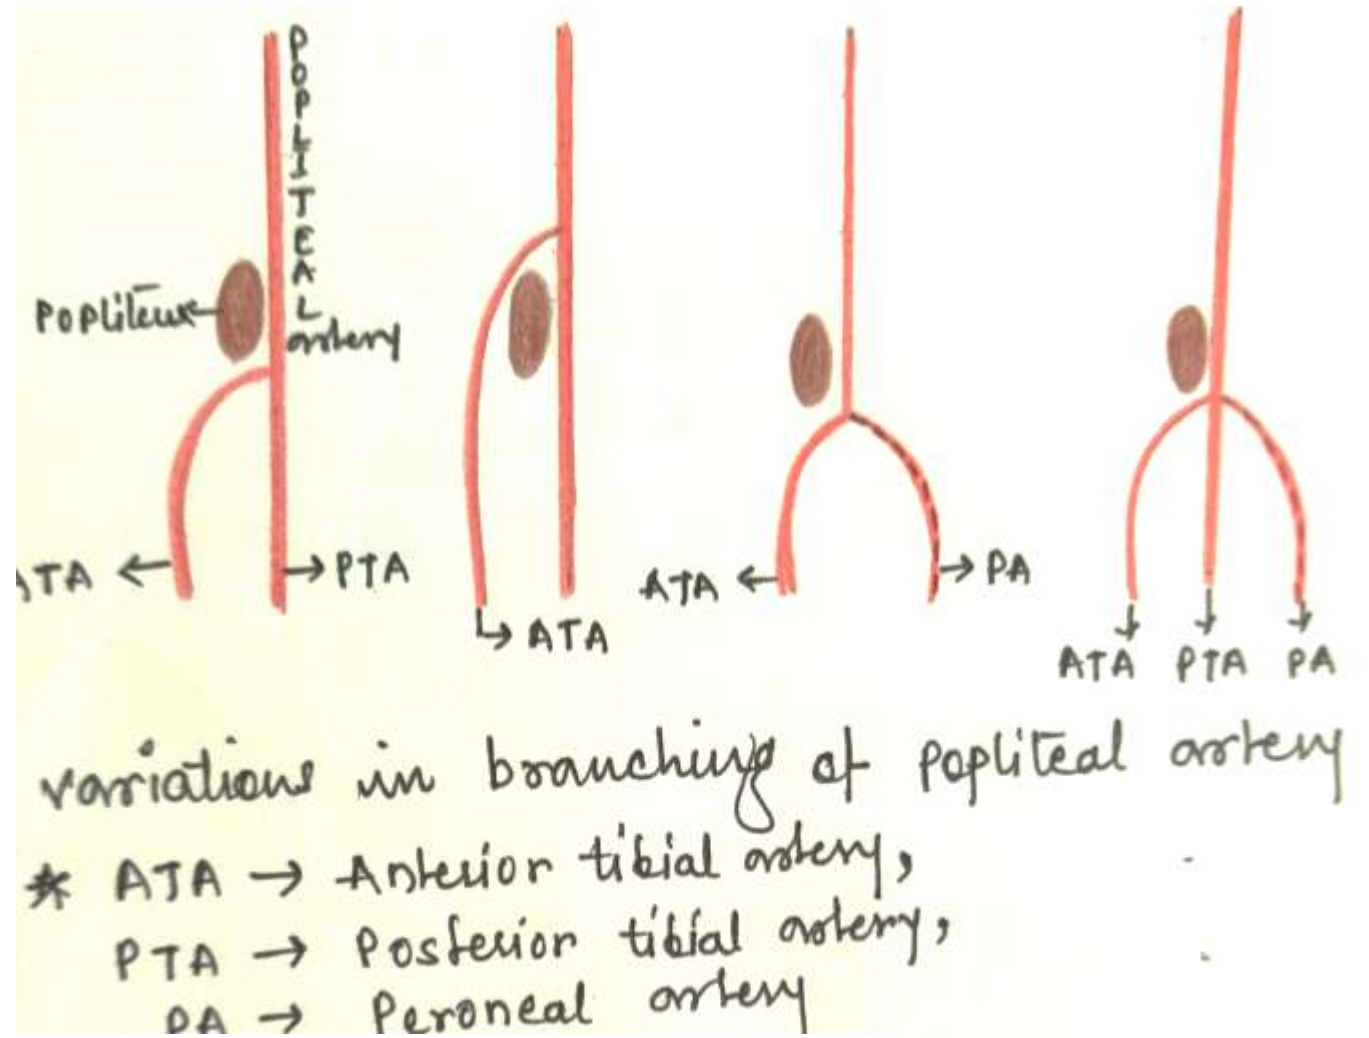 POPLITEAL
artery
Popliteus
ATA ← → PTA
↳ ATA
ATA ← → PA
ATA PTA PA
variations in branching of popliteal artery
* ATA → Anterior tibial artery,
PTA → Posterior tibial artery,
PA → Peroneal artery